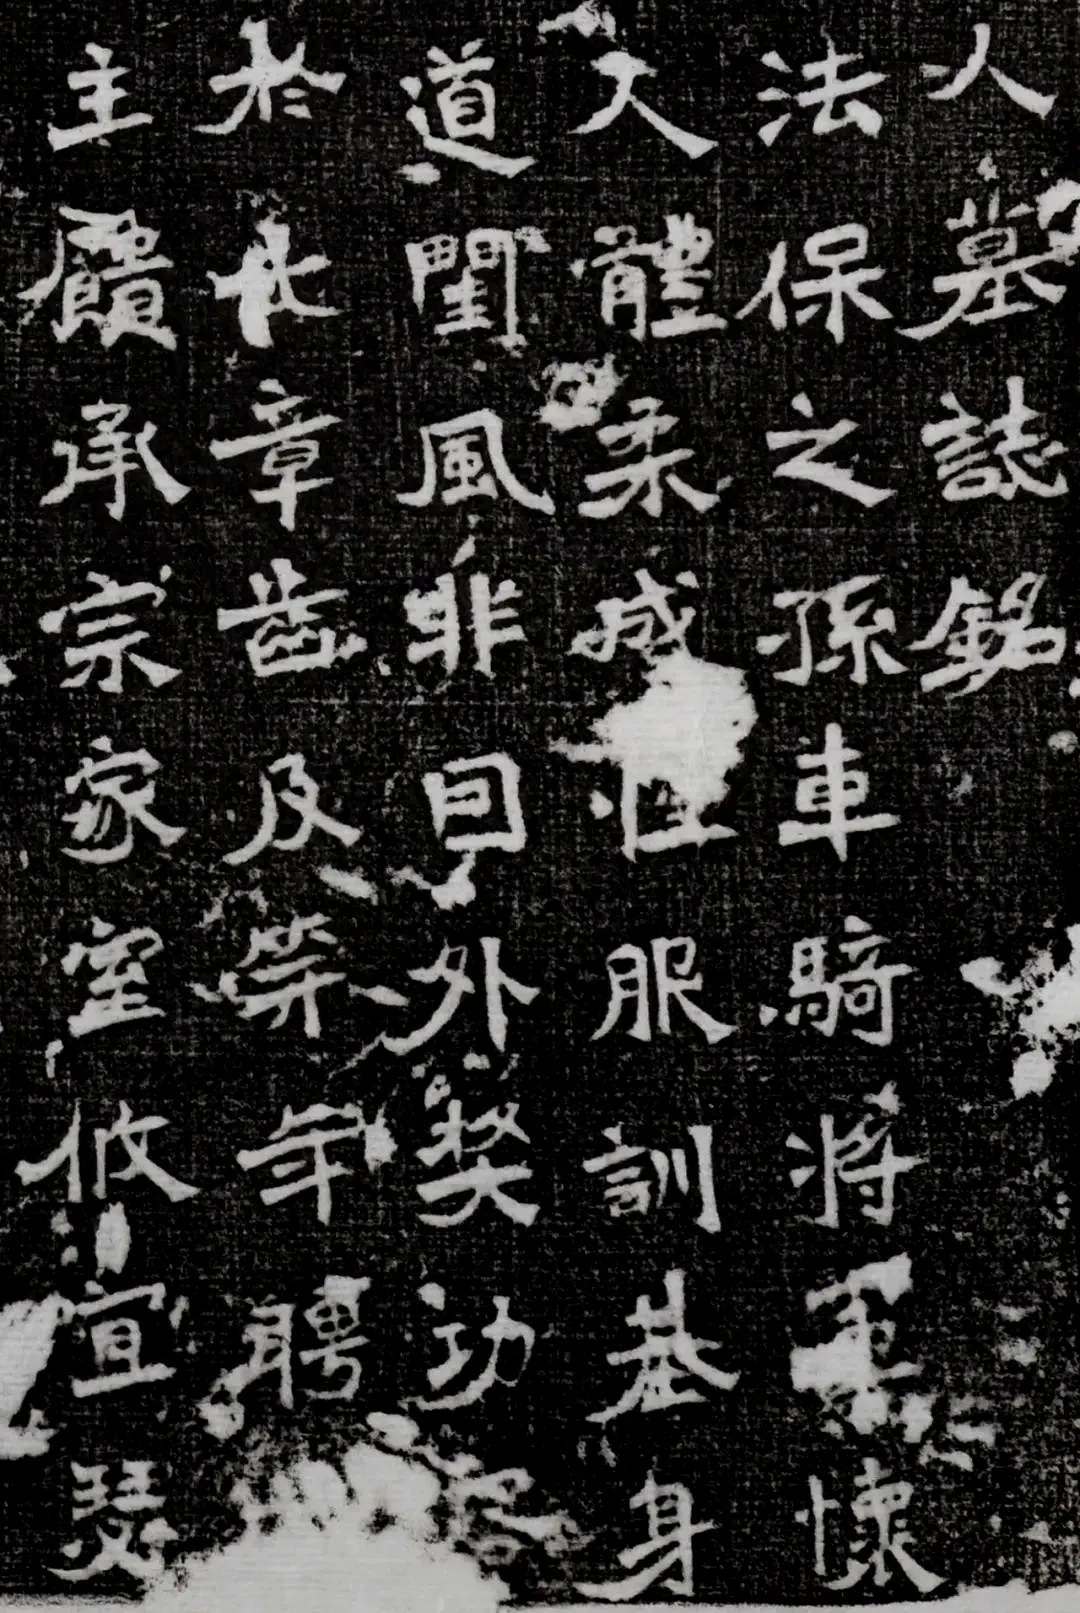 人墓誌銘
法保之孫車騎將軍懷
人體柔咸服訓基身
道閨風非因外獎功
於章齒及笄年聘
主饋承宗家室攸宜瑟